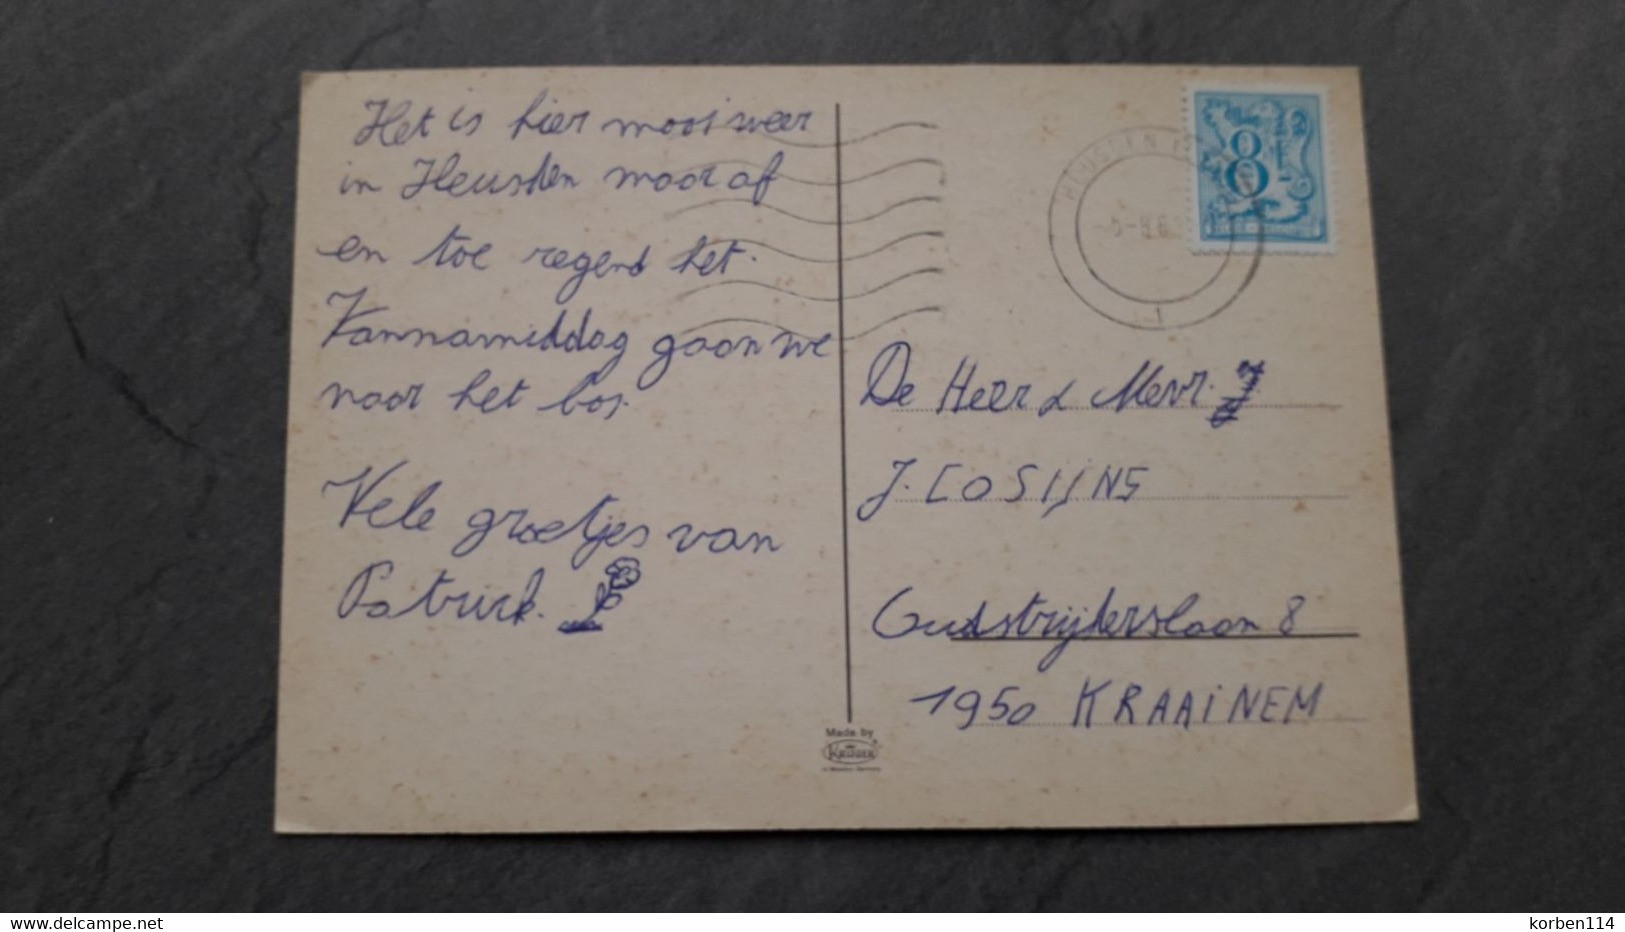 Het is hier mooi weer
in Heusden maar af
en toe regend het.
Vannamiddag gaan we
naar het bos.
Vele groetjes van
Patrick.
8F
De Heer & Mevr.
J. COSIJNS
Oudstrijderslaan 8
1950 KRAAINEM
Made by
KRÜGER
www.delcampe.net
korben114